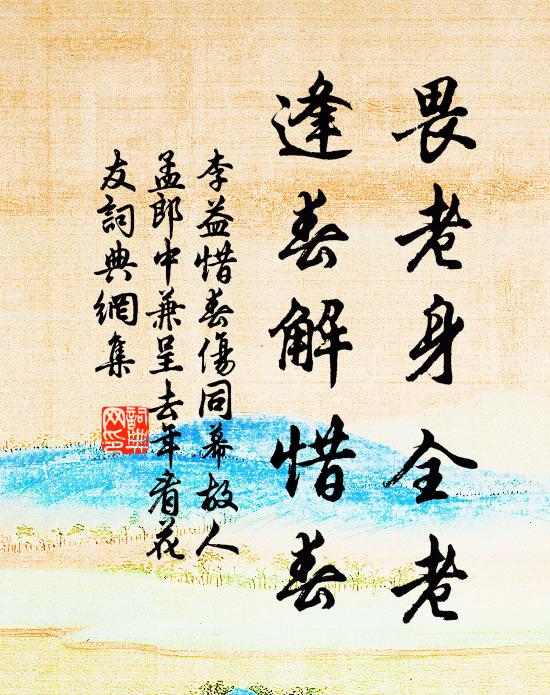 畏老身全老
逢春解惜春
李益惜春傷同幕故人
孟郎中兼呈去年看花
友詞典網集
詞典網印